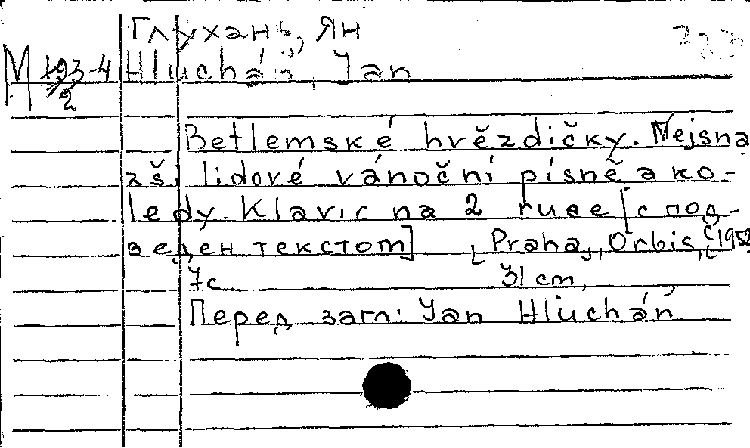 Глухань, Ян
М 193-4 Hlucháň, Jan
2
Betlemské hvězdičky. Nejsna
zši lidové vánoční písně a ko-
ledy. Klavíc na 2 ruce [с под
веден текстом] [Praha, Orbis, [1952
7с 31 cm,
Перед загл: Jan Hlucháň